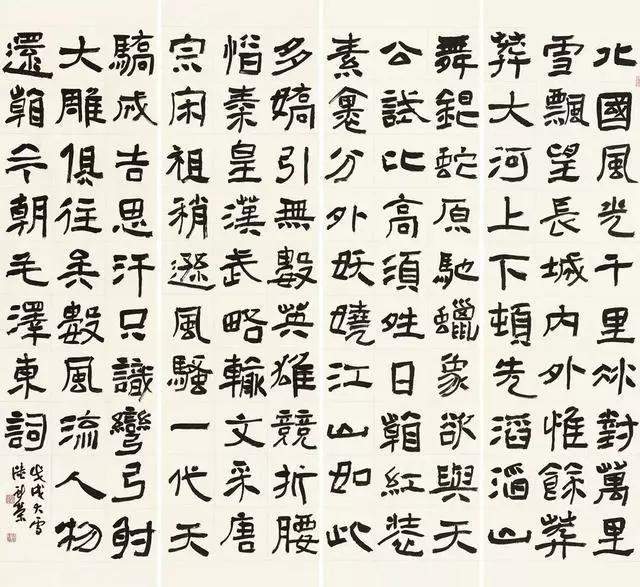 北國風光千里冰封萬里
雪飄望長城內外惟餘莽
莽大河上下頓失滔滔山
舞銀蛇原馳蠟象欲與天
公試比高須晴日看紅裝
素裹分外妖嬈江山如此
多嬌引無數英雄競折腰
惜秦皇漢武略輸文采唐
宗宋祖稍遜風騷一代天
驕成吉思汗只識彎弓射
大雕俱往矣數風流人物
還看今朝毛澤東詞
戊戌大雪